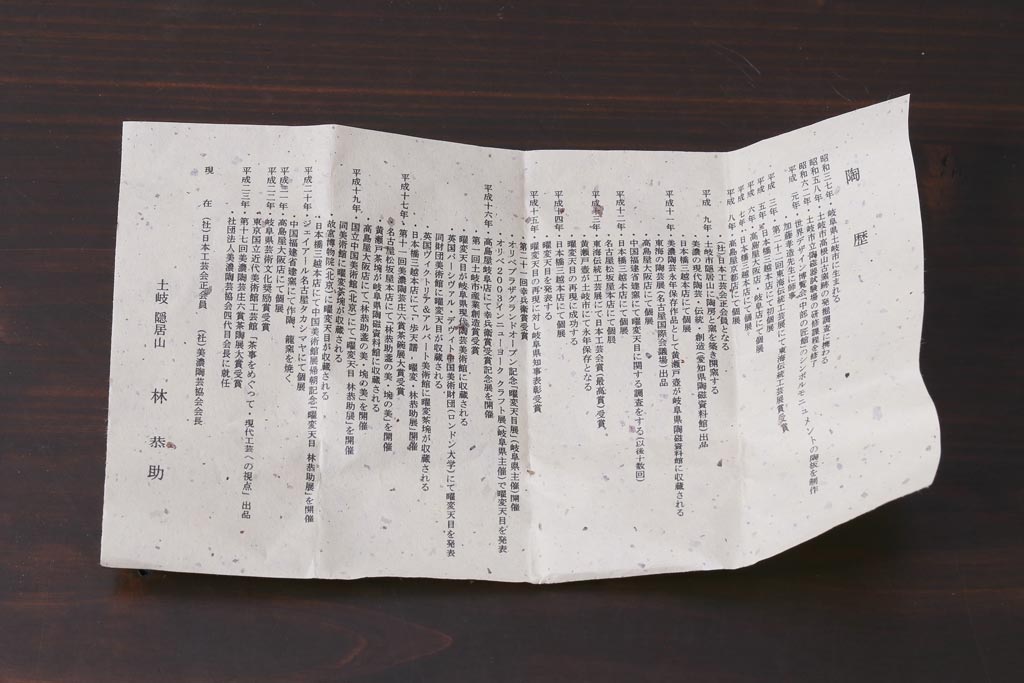 陶歴
昭和三七年・岐阜県土岐市に生まれる
昭和五八年・土岐市高根山古窯跡の発掘調査に携わる
昭和六二年・土岐市立陶磁器試験場の研修課程を修了
世界デザイン博覧会「中部の匠館」のシンボルモニュメントの陶板を制作
平成 元年・加藤孝造先生に師事
平成 三年・第二十二回東海伝統工芸展にて東海伝統工芸展賞受賞
平成 五年・日本橋三越本店にて初個展
平成 七年・日本橋三越本店・岐阜店にて個展
平成 八年・高島屋京都店にて個展
(社)日本工芸会正会員となる
平成 九年・土岐市隠居山に陶房と窯を築き開窯する
美濃の現代陶芸・伝統と創造(愛知県陶磁資料館)出品
日本橋三越本店にて個展
平成十一年・美濃陶芸永年保存作品として黄瀬戸壺が岐阜県陶磁資料館に収蔵される
東海の陶芸展(名古屋国際会議場)出品
高島屋大阪店にて個展
中国福建省建窯にて曜変天目に関する調査をする(以後十数回)
名古屋松坂屋本店にて個展
平成十二年・日本橋三越本店にて個展
東海伝統工芸展にて日本工芸会賞(最高賞)受賞
平成十三年・黄瀬戸壺が土岐市にて永年保存となる
曜変天目の再現に成功する
平成十四年・日本橋三越本店にて個展
曜変天目を発表する
平成十五年・曜変天目の再現に対し岐阜県知事表彰受賞
第二十一回幸兵衛賞受賞
・オリベプラザグランドオープン記念「曜変天目展」(岐阜県主催)開催
・オリベ2003インニューヨーク クラフト展(岐阜県主催)で曜変天目を発表
平成十六年・高島屋岐阜店にて幸兵衛賞受賞記念展を開催
第一回土岐市産業創造賞受賞
曜変天目が岐阜県現代陶芸美術館に収蔵される
英国パーシヴァル・デヴィット中国美術財団(ロンドン大学)にて曜変天目を発表
同財団美術館に曜変天目が収蔵される
英国ヴィクトリア&アルバート美術館に曜変茶垸が収蔵される
平成十七年・日本橋三越本店にて「歩天譜・曜変・林恭助展」開催
第十一回美濃陶芸庄六賞茶碗展大賞受賞
・名古屋松坂屋本店にて「林恭助盌の美・塊の美」を開催
黄瀬戸茶垸が岐阜県陶磁資料館に収蔵される
・高島屋大阪店にて「林恭助盌の美・塊の美」を開催
平成十九年・国立中国美術館(北京)にて「曜変天目 林恭助展」を開催
同美術館に曜変茶垸が収蔵される
・故宮博物院(北京)に曜変天目が収蔵される
・日本橋三越本店にて中国美術館展帰朝記念「曜変天目 林恭助展」を開催
平成二十年・ジェイアール名古屋タカシマヤにて個展
・中国福建省建窯にて作陶、龍窯を焼く
平成二一年・高島屋大阪店にて個展
平成二二年・岐阜県芸術文化奨励賞受賞
東京国立近代美術館工芸館「茶事をめぐって・現代工芸への視点」出品
平成二三年・第十七回美濃陶芸庄六賞茶陶展大賞受賞
・社団法人美濃陶芸協会四代目会長に就任
現 在 (社)日本工芸会正会員 (社)美濃陶芸協会会長
土岐 隠居山 林 恭助